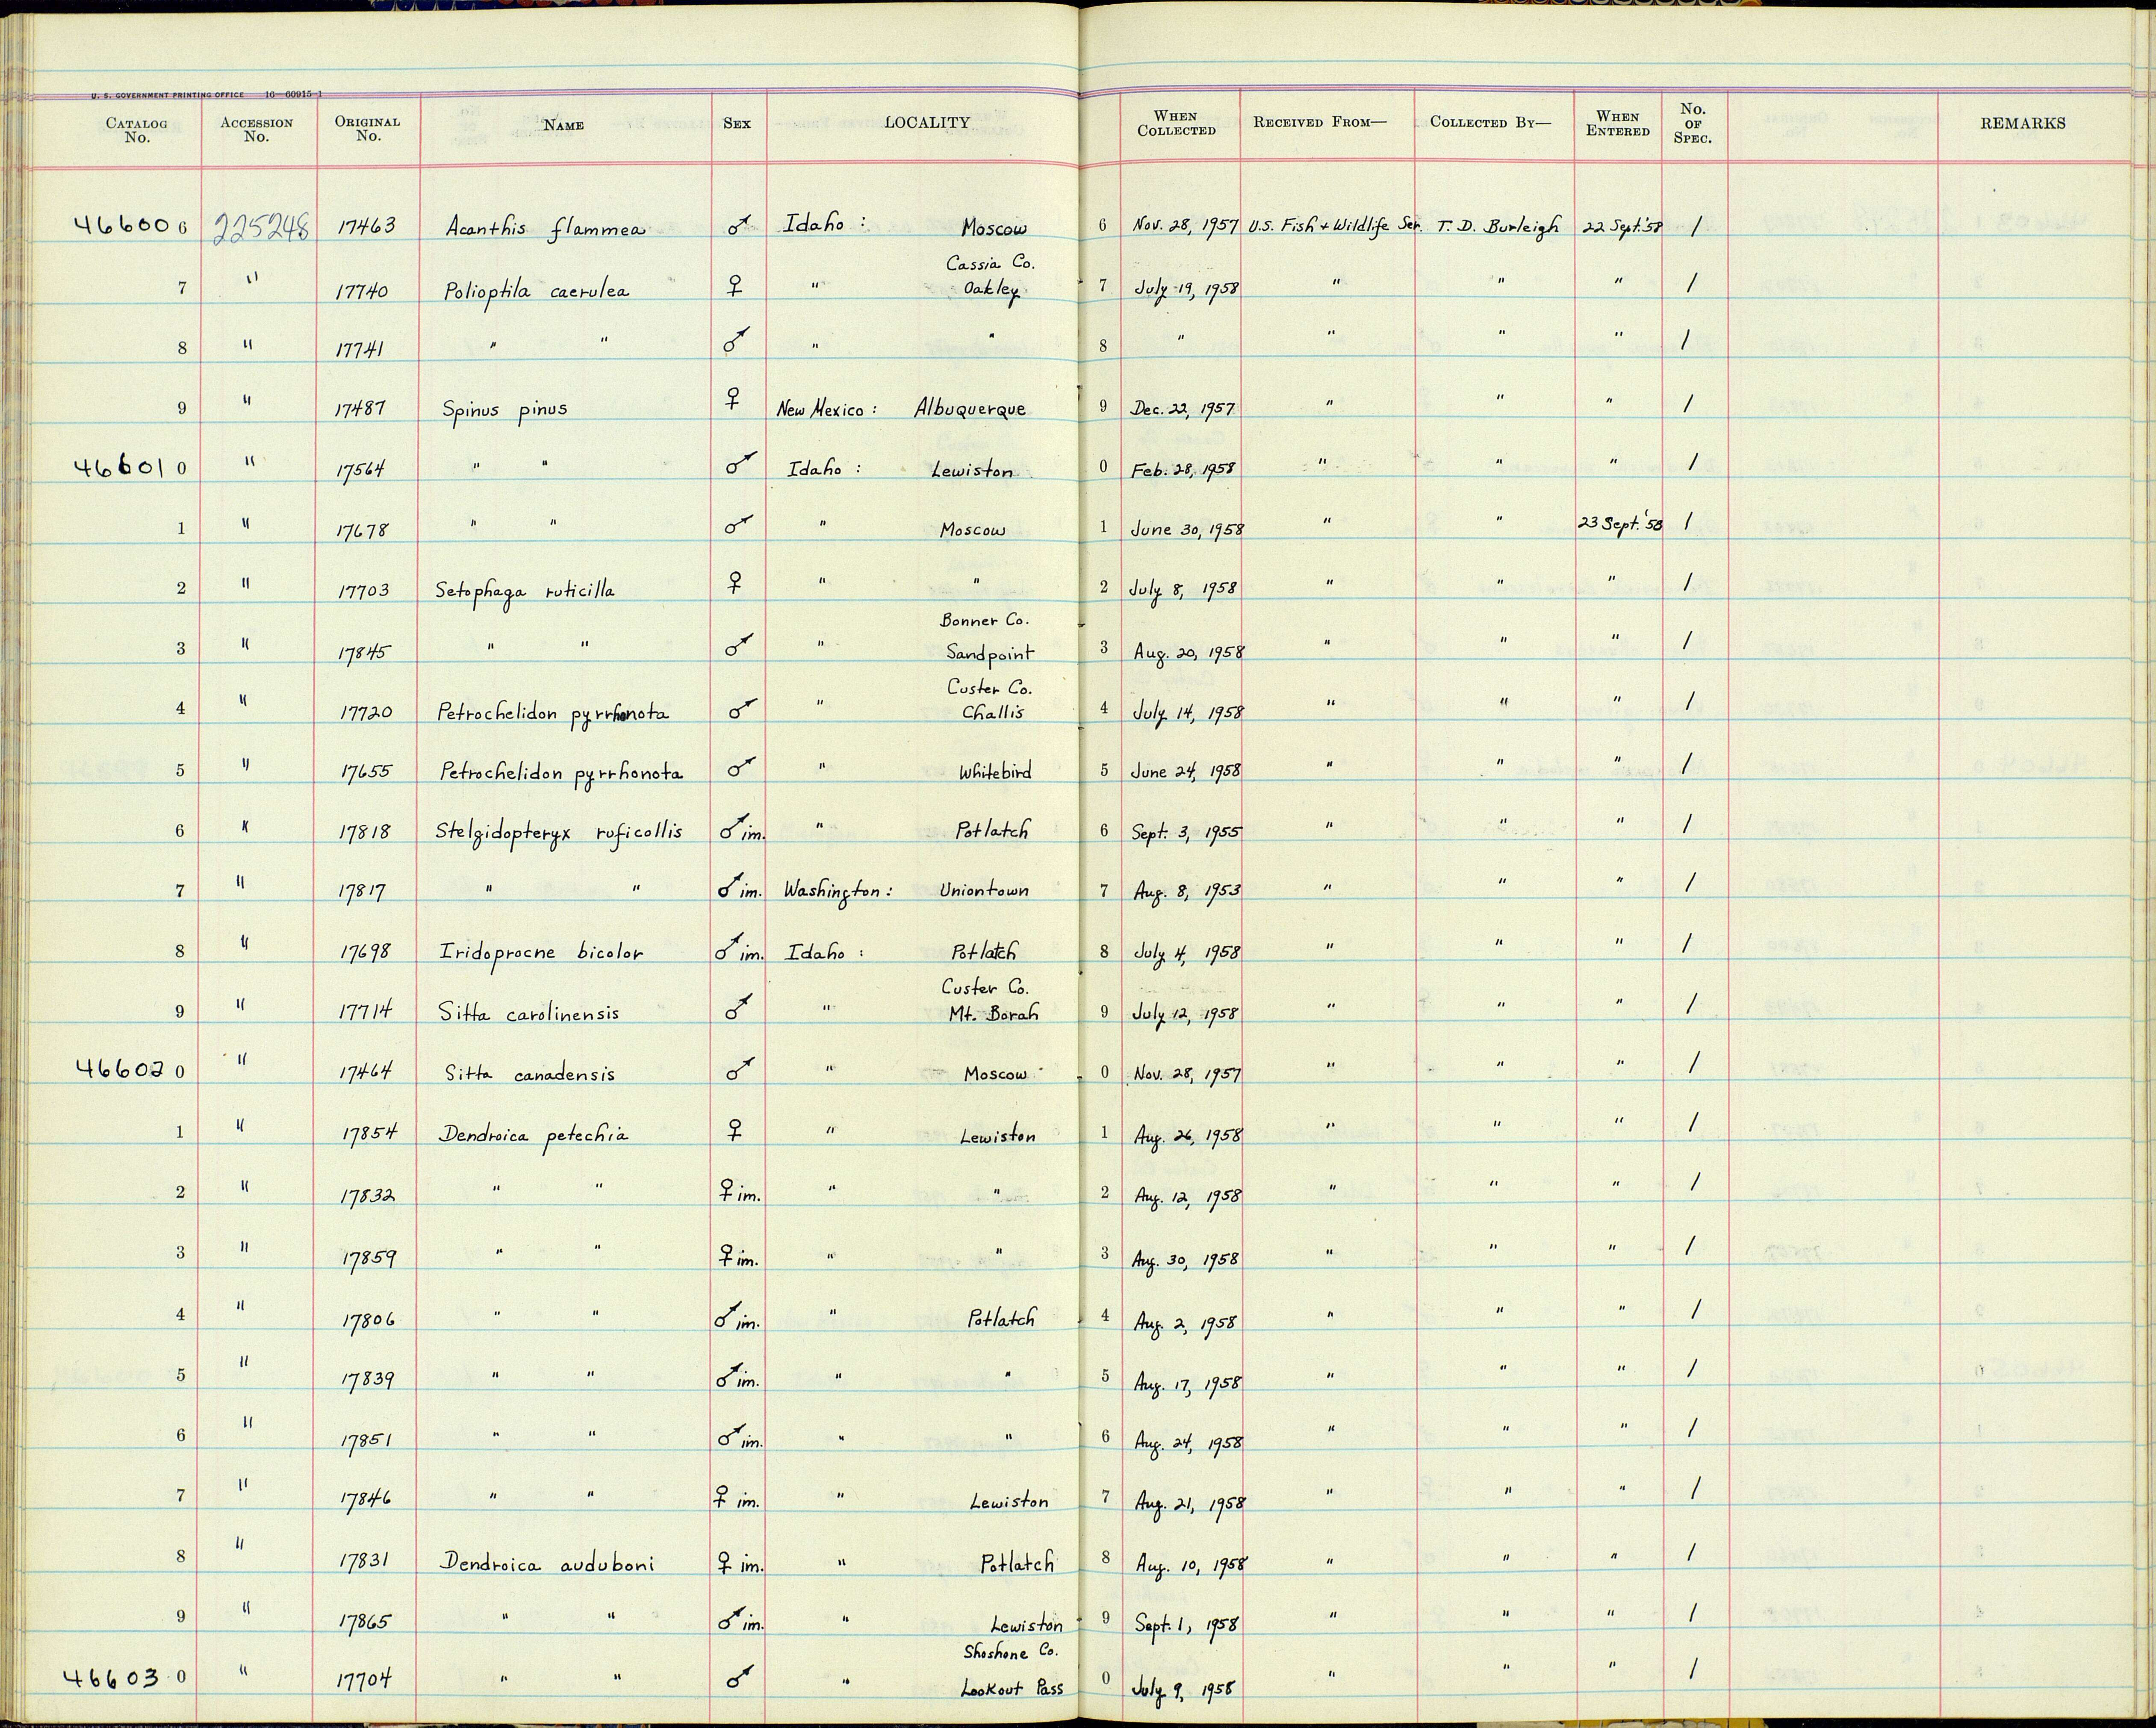 U. S. GOVERNMENT PRINTING OFFICE 16—60915-1
CATALOG No. ACCESSION No. ORIGINAL No. NAME SEX LOCALITY WHEN COLLECTED RECEIVED FROM— COLLECTED BY— WHEN ENTERED No. OF SPEC. REMARKS
466006 225248 17463 Acanthis flammea ♂ Idaho : Moscow 6 Nov. 28, 1957 U.S. Fish + Wildlife Ser. T. D. Burleigh 22 Sept. '58 1
Cassia Co.
7 " 17740 Polioptila caerulea ♀ " Oakley 7 July 19, 1958 " " " 1
8 " 17741 " " ♂ " " 8 " " " " 1
9 " 17487 Spinus pinus ♀ New Mexico : Albuquerque 9 Dec. 22, 1957 " " " 1
466010 " 17564 " " ♂ Idaho : Lewiston 0 Feb. 28, 1958 " " " 1
1 " 17678 " " ♂ " Moscow 1 June 30, 1958 " " 23 Sept. '58 1
2 " 17703 Setophaga ruticilla ♀ " " 2 July 8, 1958 " " " 1
Bonner Co.
3 " 17845 " " ♂ " Sandpoint 3 Aug. 20, 1958 " " " 1
Custer Co.
4 " 17720 Petrochelidon pyrrhonota ♂ " Challis 4 July 14, 1958 " " " 1
5 " 17655 Petrochelidon pyrrhonota ♂ " Whitebird 5 June 24, 1958 " " " 1
6 " 17818 Stelgidopteryx ruficollis ♂ im. " Potlatch 6 Sept. 3, 1955 " " " 1
7 " 17817 " " ♂ im. Washington : Uniontown 7 Aug. 8, 1953 " " " 1
8 " 17698 Iridoprocne bicolor ♂ im. Idaho : Potlatch 8 July 4, 1958 " " " 1
Custer Co.
9 " 17714 Sitta carolinensis ♂ " Mt. Borah 9 July 12, 1958 " " " 1
466020 " 17464 Sitta canadensis ♂ " Moscow 0 Nov. 28, 1957 " " " 1
1 " 17854 Dendroica petechia ♀ " Lewiston 1 Aug. 26, 1958 " " " 1
2 " 17832 " " ♀ im. " " 2 Aug. 12, 1958 " " " 1
3 " 17859 " " ♀ im. " " 3 Aug. 30, 1958 " " " 1
4 " 17806 " " ♂ im. " Potlatch 4 Aug. 2, 1958 " " " 1
5 " 17839 " " ♂ im. " " 5 Aug. 17, 1958 " " " 1
6 " 17851 " " ♂ im. " " 6 Aug. 24, 1958 " " " 1
7 " 17846 " " ♀ im. " Lewiston 7 Aug. 21, 1958 " " " 1
8 " 17831 Dendroica auduboni ♀ im. " Potlatch 8 Aug. 10, 1958 " " " 1
9 " 17865 " " ♂ im. " Lewiston 9 Sept. 1, 1958 " " " 1
Shoshone Co.
466030 " 17704 " " ♂ " Lookout Pass 0 July 9, 1958 " " " 1